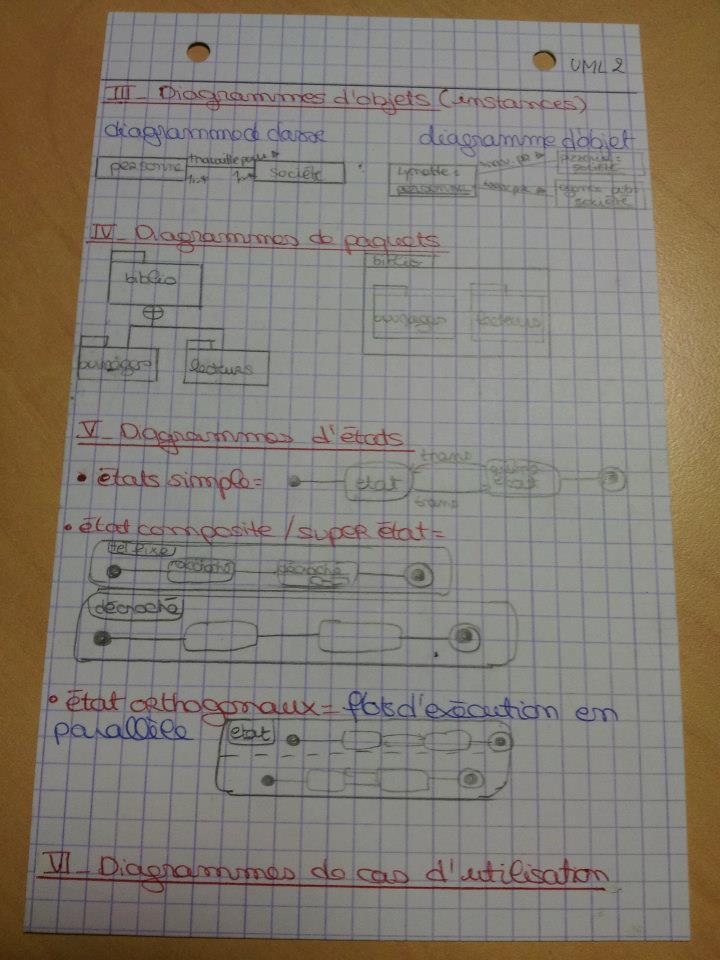 UML 2
III - Diagrammes d'objets (instances)
diagramme de classe
diagramme d'objet
personne
travaille pour
société
1..*
1..*
personne
société
société
IV - Diagrammes de paquets
biblio
biblio
ouvrages
lecteurs
ouvrages
lecteurs
V - Diagrammes d'états
• états simple =
etat
trans
trans
etat
• état composite / super état =
tel fixe
raccroché
décroché
décroché
• état orthogonaux = flots d'exécution en
parallèle
etat
VI - Diagrammes de cas d'utilisation